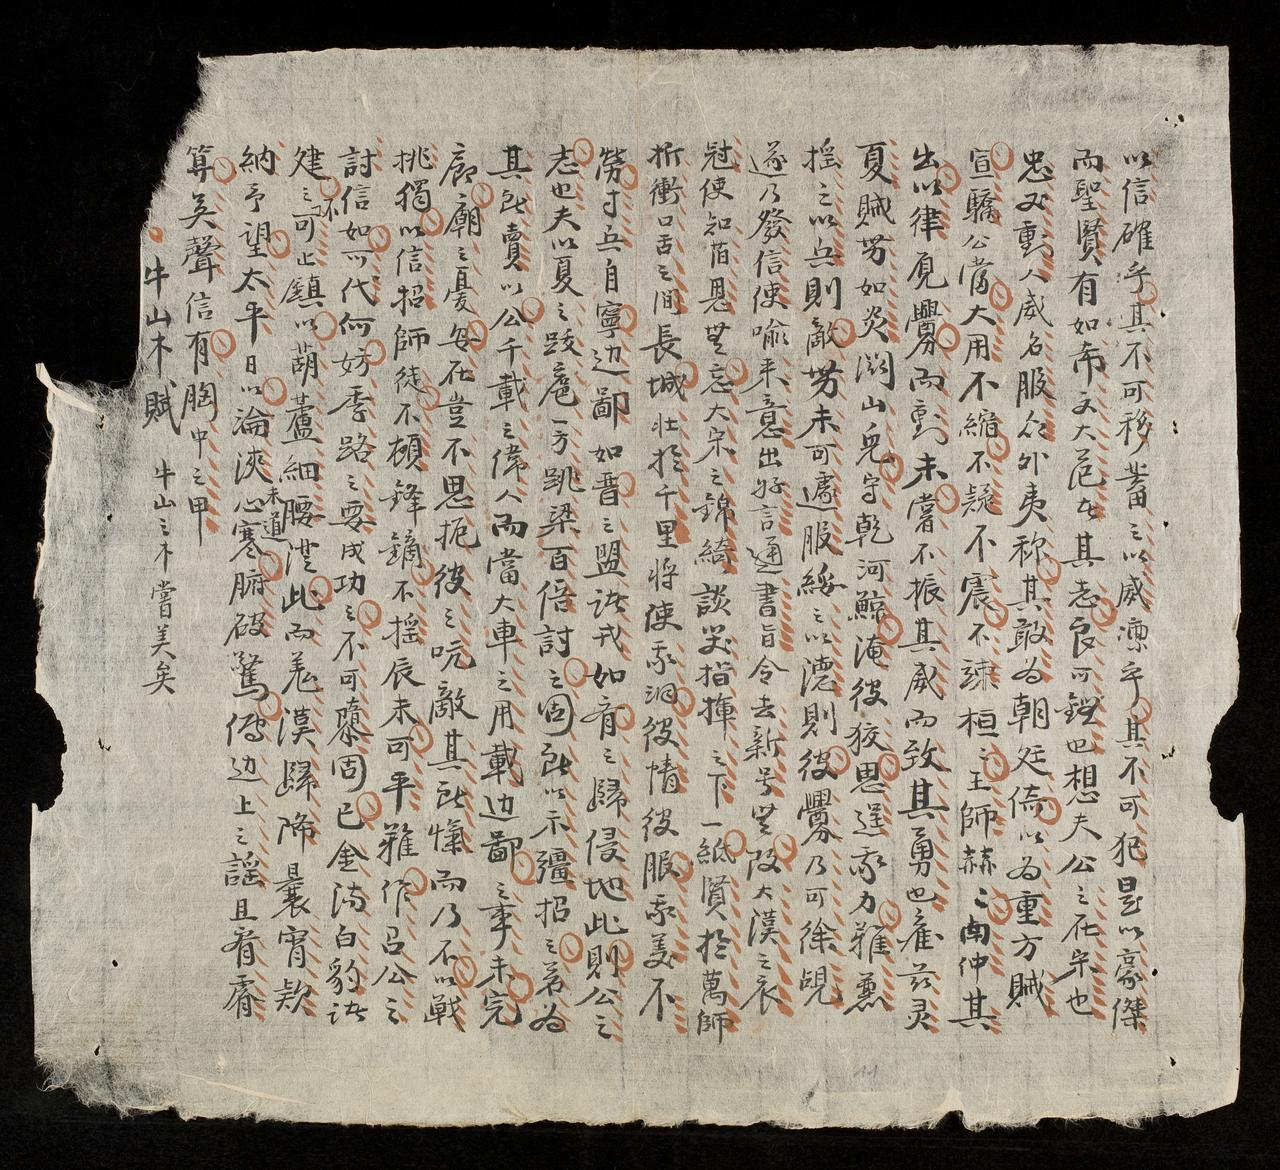 以信確乎其不可移蓄之以威凛乎其不可犯是以豪傑
而聖賢有如希文大范者其志良可鏗也想夫公之在宋也
忠又動人威名服众外夷称其敢为朝廷倚以为重方賊
宣驕公當大用不縮不疑不震不竦桓〻王師赫〻南仲其
出以律覓釁而動未嘗不振其威而致其勇也在茲灵
夏賊势如炎関山皃守乾河鯨淹彼狡思逞我力難
摇之以兵則敵势未可遽服綏之以德則彼釁乃可徐覘
遂乃發信使喻来意出好言通書旨令去新号無改大漢之衣
冠使知旧恩無忘大宋之錦綺談笑指揮之下一紙賢於萬師
折衝口舌之间長城壮於千里将使我洞彼情彼服我美不
勞寸兵自寧边鄙如晋之盟諸戎如齐之歸侵地此則公之
志也夫以夏之跋扈一方跳梁百倍討之固所以示疆招之若为
其所賣以公千載之偉人而當大車之用載边鄙之事未完
廊廟之憂每在豈不思扼彼之吭敵其所愾而乃不以戦
挑獨以信招師徒不頓鋒鏑不摇辰未可乎難作召公之
討信如可代何妨季路之要成功之不可隳固已金湯白豹諸
建之不可止鎮以葫蘆細腰洪此而羌漢歸降曩宵款
納予望太平日以淪浹心寒未道腑破驚傳边上之謡且看睿
算英聲信有胸中之甲
牛山木賦 牛山之木嘗美矣